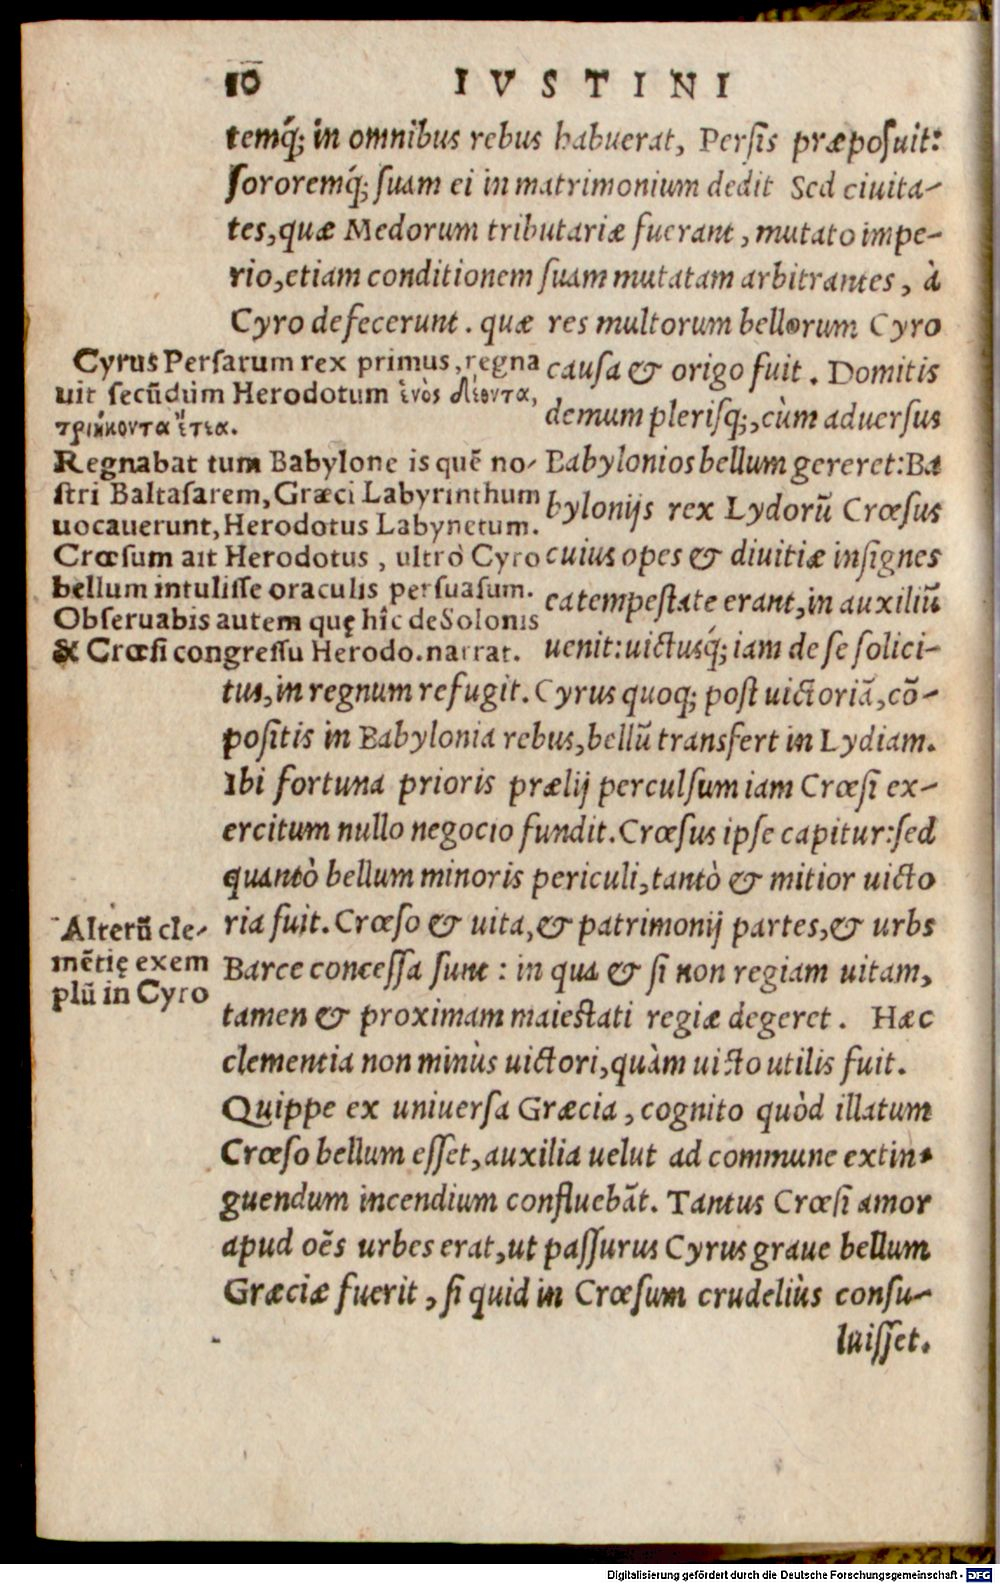 10 IVSTINI
temq́; in omnibus rebus habuerat, Persis præposuit:
sororemq́; suam ei in matrimonium dedit Sed ciuita-
tes, quæ Medorum tributariæ fuerant, mutato impe-
rio, etiam conditionem suam mutatam arbitrantes, à
Cyro defecerunt. quæ res multorum bellorum Cyro
causa & origo fuit. Domitis
demum plerisq;, cùm aduersus
Babylonios bellum gereret: Ba
bylonijs rex Lydorū Crœsus
cuius opes & diuitiæ insignes
ea tempestate erant, in auxiliū
uenit: uictusq́; iam de se solici-
tus, in regnum refugit. Cyrus quoq; post uictoriā, cō-
positis in Babylonia rebus, bellū transfert in Lydiam.
Ibi fortuna prioris prælij perculsum iam Crœsi ex-
ercitum nullo negocio fundit. Crœsus ipse capitur: sed
quantò bellum minoris periculi, tantò & mitior uicto
ria fuit. Crœso & uita, & patrimonij partes, & urbs
Barce concessa sunt: in qua & si non regiam uitam,
tamen & proximam maiestati regiæ degeret. Hæc
clementia non minùs uictori, quàm uicto utilis fuit.
Quippe ex uniuersa Græcia, cognito quòd illatum
Crœso bellum esset, auxilia uelut ad commune extin-
guendum incendium confluebāt. Tantus Crœsi amor
apud oēs urbes erat, ut passurus Cyrus graue bellum
Græciæ fuerit, si quid in Crœsum crudeliùs consu-
luisset.
Cyrus Persarum rex primus, regna
uit secūdum Herodotum ἑνὸς δέοντα,
τριήκοντα ἔτεα.
Regnabat tum Babylone is quē no-
stri Baltasarem, Græci Labyrinthum
uocauerunt, Herodotus Labynetum.
Crœsum ait Herodotus, ultrò Cyro
bellum intulisse oraculis persuasum.
Obseruabis autem quę hîc de Solonis
& Crœsi congressu Herodo. narrat.
Alterū cle-
mētię exem
plū in Cyro
Digitalisierung gefördert durch die Deutsche Forschungsgemeinschaft - DFG